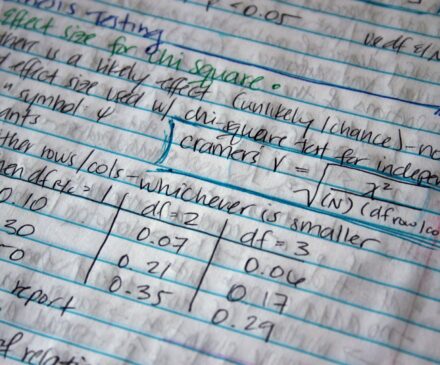 p < 0.05
Testing
Effect size for chi square.
there is a likely effect (unlikely / chance) - no
effect size used w/ chi-square test for indepe
symbol: φ
cramers V = √ x²
(N) (df row/co
ither rows/cols - whichever is smaller
df = 2 df = 3
0.10 0.07 0.06
30 0.21 0.17
0.35 0.29
report
of relatio